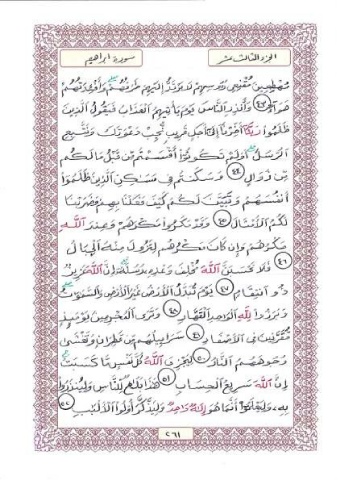 الجزء الثالث عشر
سورة ابراهيم
مُهْطِعِينَ مُقْنِعِي رُءُوسِهِمْ لَا يَرْتَدُّ إِلَيْهِمْ طَرْفُهُمْ وَأَفْئِدَتُهُمْ
هَوَآءٌ ٤٣ وَأَنذِرِ النَّاسَ يَوْمَ يَأْتِيهِمُ الْعَذَابُ فَيَقُولُ الَّذِينَ
ظَلَمُوا رَبَّنَآ أَخِّرْنَآ إِلَىٰٓ أَجَلٍ قَرِيبٍ نُّجِبْ دَعْوَتَكَ وَنَتَّبِعِ
الرُّسُلَ أَوَلَمْ تَكُونُوٓا أَقْسَمْتُم مِّن قَبْلُ مَا لَكُم
مِّن زَوَالٍ ٤٤ وَسَكَنتُمْ فِي مَسَٰكِنِ الَّذِينَ ظَلَمُوٓا
أَنفُسَهُمْ وَتَبَيَّنَ لَكُمْ كَيْفَ فَعَلْنَا بِهِمْ وَضَرَبْنَا
لَكُمُ الْأَمْثَالَ ٤٥ وَقَدْ مَكَرُوا مَكْرَهُمْ وَعِندَ اللَّهِ
مَكْرُهُمْ وَإِن كَانَ مَكْرُهُمْ لِتَزُولَ مِنْهُ الْجِبَالُ
٤٦ فَلَا تَحْسَبَنَّ اللَّهَ مُخْلِفَ وَعْدِهِ رُسُلَهُ إِنَّ اللَّهَ عَزِيزٌ
ذُو انتِقَامٍ ٤٧ يَوْمَ تُبَدَّلُ الْأَرْضُ غَيْرَ الْأَرْضِ وَالسَّمَٰوَٰتُ
وَبَرَزُوا لِلَّهِ الْوَاحِدِ الْقَهَّارِ ٤٨ وَتَرَى الْمُجْرِمِينَ يَوْمَئِذٍ
مُّقَرَّنِينَ فِي الْأَصْفَادِ ٤٩ سَرَابِيلُهُم مِّن قَطِرَانٍ وَتَغْشَىٰ
وُجُوهَهُمُ النَّارُ ٥٠ لِيَجْزِيَ اللَّهُ كُلَّ نَفْسٍ مَّا كَسَبَتْ
إِنَّ اللَّهَ سَرِيعُ الْحِسَابِ ٥١ هَٰذَا بَلَٰغٌ لِّلنَّاسِ وَلِيُنذَرُوا
بِهِ وَلِيَعْلَمُوٓا أَنَّمَا هُوَ إِلَٰهٌ وَاحِدٌ وَلِيَذَّكَّرَ أُولُوا الْأَلْبَٰبِ ٥٢
٢٦١